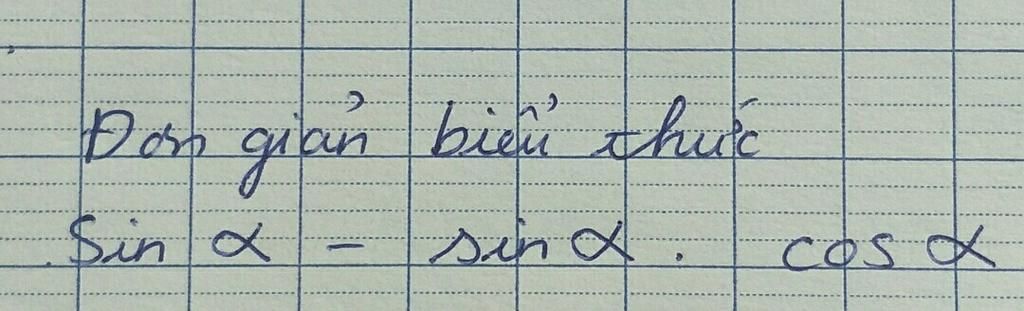 Đơn giản biểu thức
Sin α - sin α . cos α